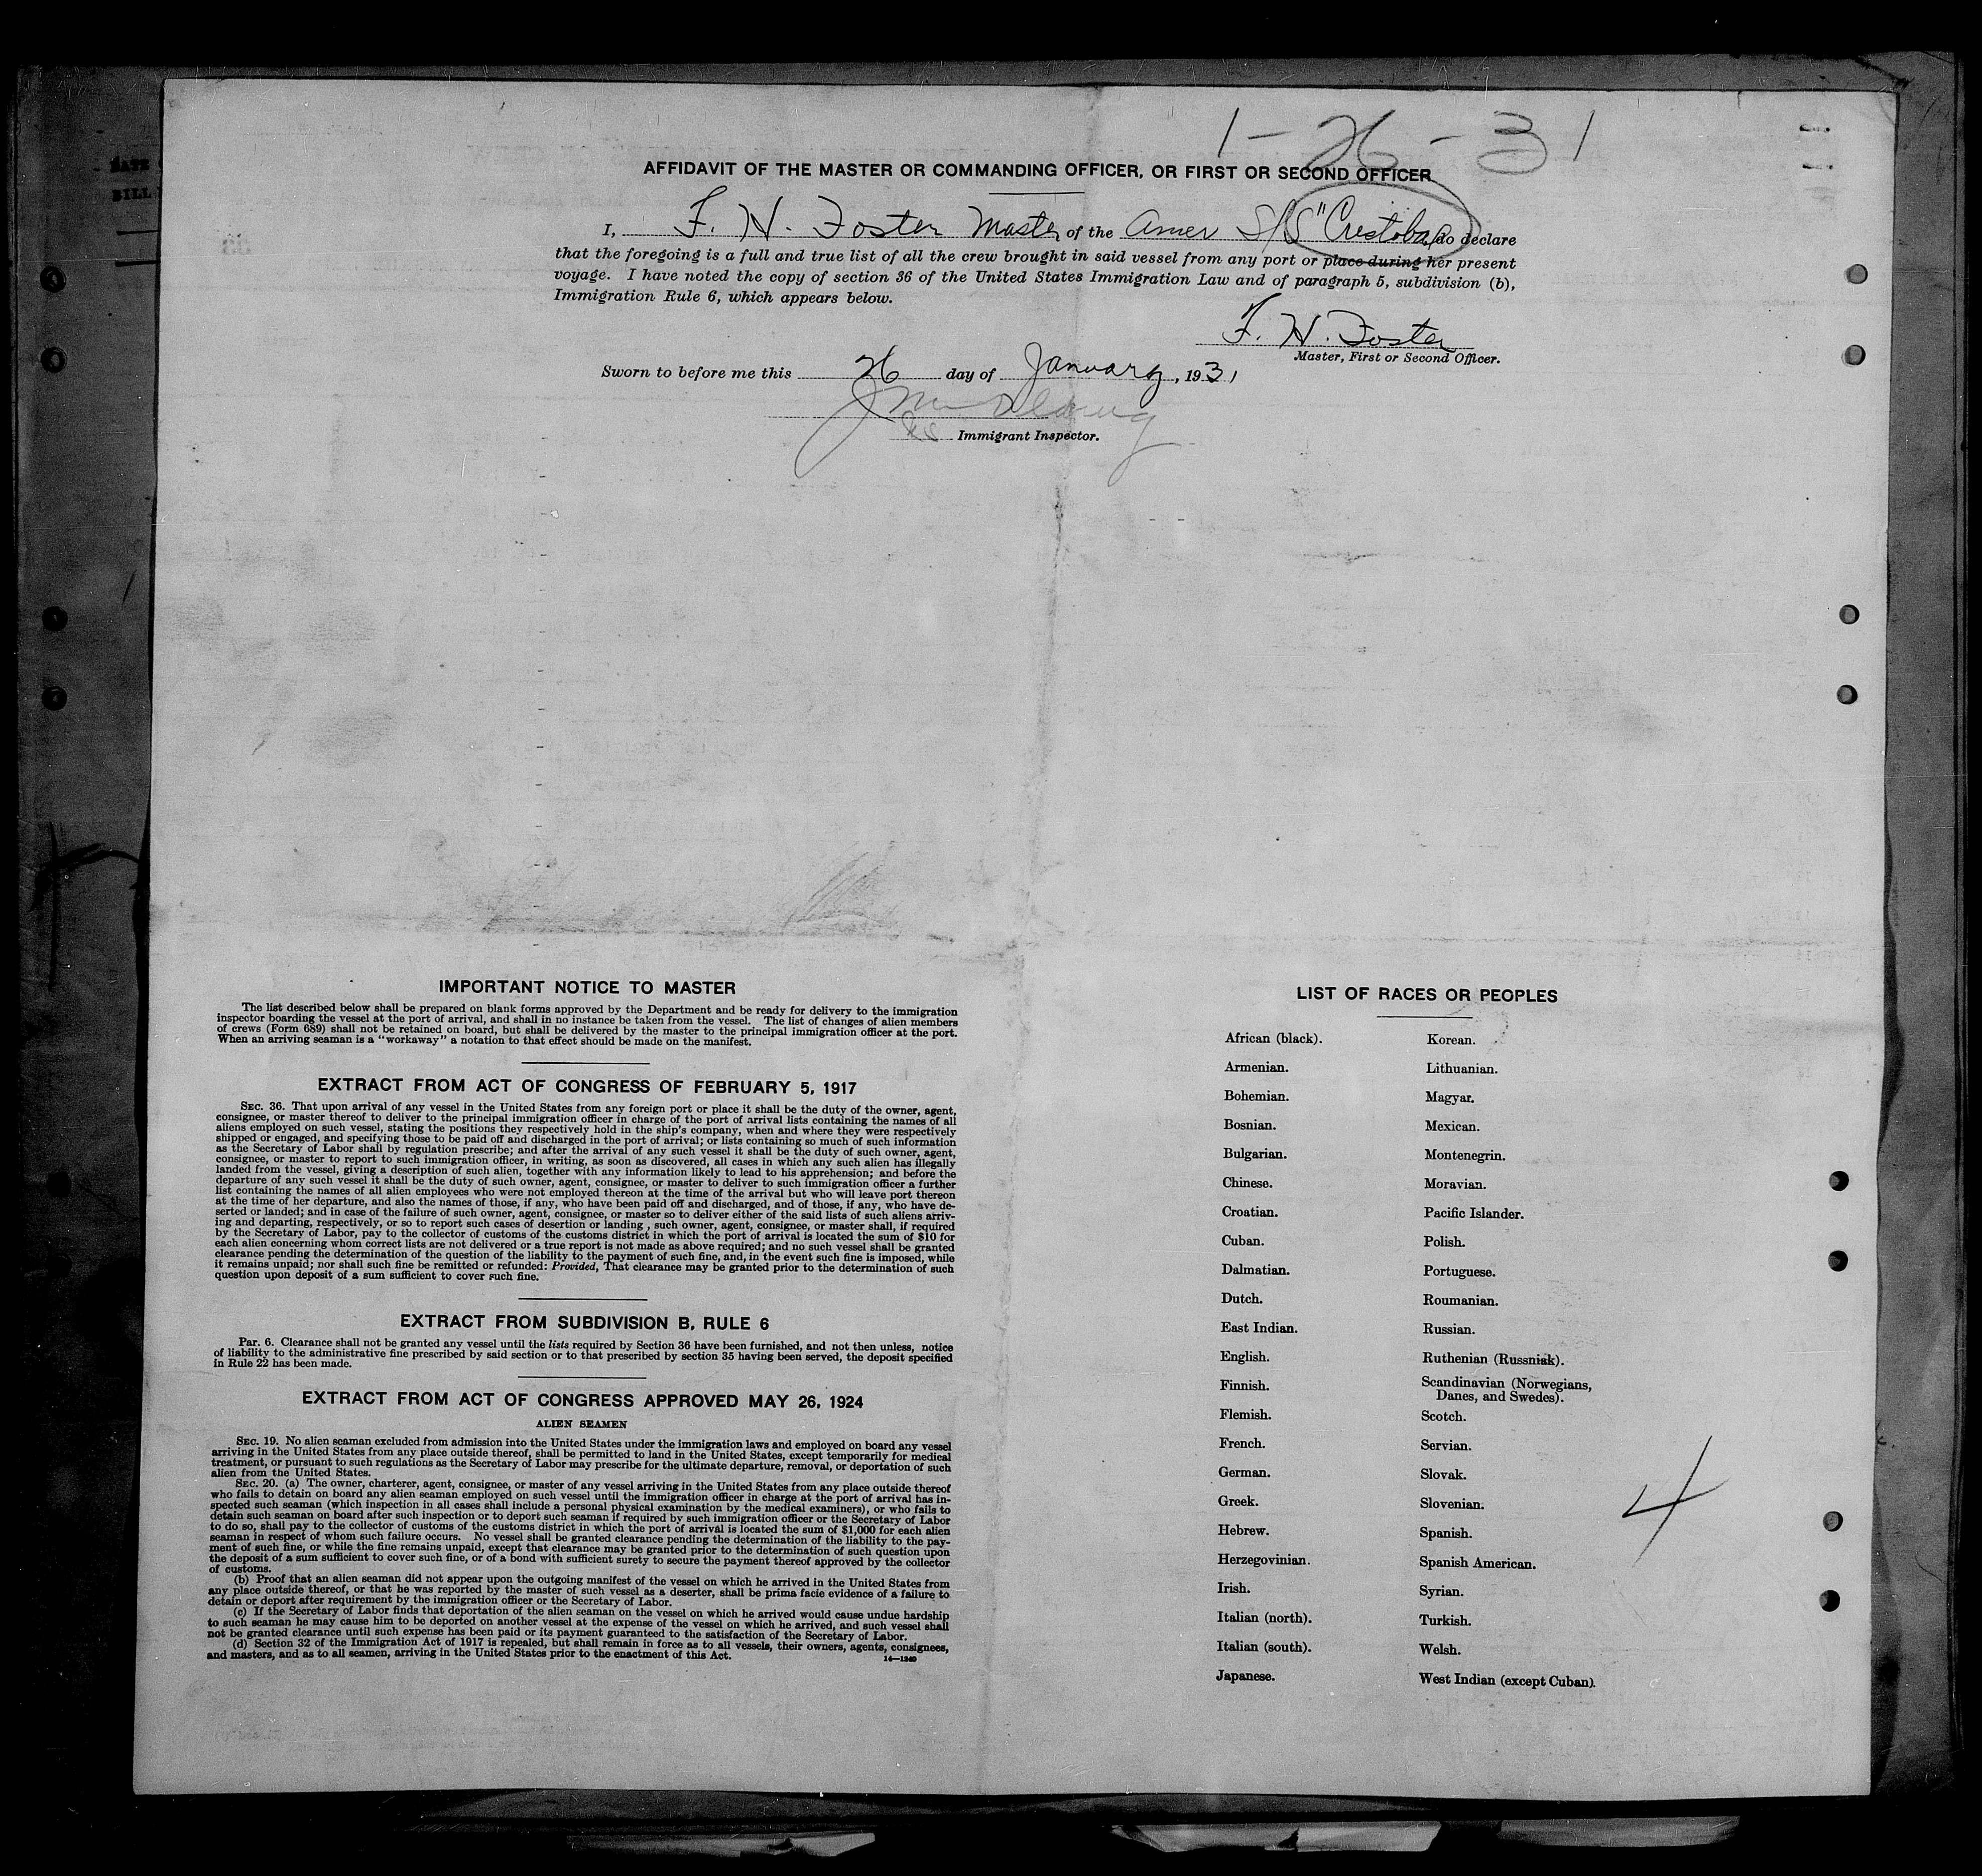 1-26-31
AFFIDAVIT OF THE MASTER OR COMMANDING OFFICER, OR FIRST OR SECOND OFFICER
I, F. H. Foster Master of the Amer S/S "Cristobal do declare
that the foregoing is a full and true list of all the crew brought in said vessel from any port or place during her present
voyage. I have noted the copy of section 36 of the United States Immigration Law and of paragraph 5, subdivision (b),
Immigration Rule 6, which appears below.
F. H. Foster
Master, First or Second Officer.
Sworn to before me this 26 day of January, 1931
Immigrant Inspector.
IMPORTANT NOTICE TO MASTER
The list described below shall be prepared on blank forms approved by the Department and be ready for delivery to the immigration
inspector boarding the vessel at the port of arrival, and shall in no instance be taken from the vessel. The list of changes of alien members
of crews (Form 689) shall not be retained on board, but shall be delivered by the master to the principal immigration officer at the port.
When an arriving seaman is a "workaway" a notation to that effect should be made on the manifest.
EXTRACT FROM ACT OF CONGRESS OF FEBRUARY 5, 1917
SEC. 36. That upon arrival of any vessel in the United States from any foreign port or place it shall be the duty of the owner, agent,
consignee, or master thereof to deliver to the principal immigration officer in charge of the port of arrival lists containing the names of all
aliens employed on such vessel, stating the positions they respectively hold in the ship's company, when and where they were respectively
shipped or engaged, and specifying those to be paid off and discharged in the port of arrival; or lists containing so much of such information
as the Secretary of Labor shall by regulation prescribe; and after the arrival of any such vessel it shall be the duty of such owner, agent,
consignee, or master to report to such immigration officer, in writing, as soon as discovered, all cases in which any such alien has illegally
landed from the vessel, giving a description of such alien, together with any information likely to lead to his apprehension; and before the
departure of any such vessel it shall be the duty of such owner, agent, consignee, or master to deliver to such immigration officer a further
list containing the names of all alien employees who were not employed thereon at the time of the arrival but who will leave port thereon
at the time of her departure, and also the names of those, if any, who have been paid off and discharged, and of those, if any, who have de-
serted or landed; and in case of the failure of such owner, agent, consignee, or master so to deliver either of the said lists of such aliens arriv-
ing and departing, respectively, or so to report such cases of desertion or landing, such owner, agent, consignee, or master shall, if required
by the Secretary of Labor, pay to the collector of customs of the customs district in which the port of arrival is located the sum of $10 for
each alien concerning whom correct lists are not delivered or a true report is not made as above required; and no such vessel shall be granted
clearance pending the determination of the question of the liability to the payment of such fine, and, in the event such fine is imposed, while
it remains unpaid; nor shall such fine be remitted or refunded: Provided, That clearance may be granted prior to the determination of such
question upon deposit of a sum sufficient to cover such fine.
EXTRACT FROM SUBDIVISION B, RULE 6
Par. 6. Clearance shall not be granted any vessel until the lists required by Section 36 have been furnished, and not then unless, notice
of liability to the administrative fine prescribed by said section or to that prescribed by section 35 having been served, the deposit specified
in Rule 22 has been made.
EXTRACT FROM ACT OF CONGRESS APPROVED MAY 26, 1924
ALIEN SEAMEN
SEC. 19. No alien seaman excluded from admission into the United States under the immigration laws and employed on board any vessel
arriving in the United States from any place outside thereof, shall be permitted to land in the United States, except temporarily for medical
treatment, or pursuant to such regulations as the Secretary of Labor may prescribe for the ultimate departure, removal, or deportation of such
alien from the United States.
SEC. 20. (a) The owner, charterer, agent, consignee, or master of any vessel arriving in the United States from any place outside thereof
who fails to detain on board any alien seaman employed on such vessel until the immigration officer in charge at the port of arrival has in-
spected such seaman (which inspection in all cases shall include a personal physical examination by the medical examiners), or who fails to
detain such seaman on board after such inspection or to deport such seaman if required by such immigration officer or the Secretary of Labor
to do so, shall pay to the collector of customs of the customs district in which the port of arrival is located the sum of $1,000 for each alien
seaman in respect of whom such failure occurs. No vessel shall be granted clearance pending the determination of the liability to the pay-
ment of such fine, or while the fine remains unpaid, except that clearance may be granted prior to the determination of such question upon
the deposit of a sum sufficient to cover such fine, or of a bond with sufficient surety to secure the payment thereof approved by the collector
of customs.
(b) Proof that an alien seaman did not appear upon the outgoing manifest of the vessel on which he arrived in the United States from
any place outside thereof, or that he was reported by the master of such vessel as a deserter, shall be prima facie evidence of a failure to
detain or deport after requirement by the immigration officer or the Secretary of Labor.
(c) If the Secretary of Labor finds that deportation of the alien seaman on the vessel on which he arrived would cause undue hardship
to such seaman he may cause him to be deported on another vessel at the expense of the vessel on which he arrived, and such vessel shall
not be granted clearance until such expense has been paid or its payment guaranteed to the satisfaction of the Secretary of Labor.
(d) Section 32 of the Immigration Act of 1917 is repealed, but shall remain in force as to all vessels, their owners, agents, consignees,
and masters, and as to all seamen, arriving in the United States prior to the enactment of this Act.
14—1240
LIST OF RACES OR PEOPLES
African (black).
Armenian.
Bohemian.
Bosnian.
Bulgarian.
Chinese.
Croatian.
Cuban.
Dalmatian.
Dutch.
East Indian.
English.
Finnish.
Flemish.
French.
German.
Greek.
Hebrew.
Herzegovinian.
Irish.
Italian (north).
Italian (south).
Japanese.
Korean.
Lithuanian.
Magyar.
Mexican.
Montenegrin.
Moravian.
Pacific Islander.
Polish.
Portuguese.
Roumanian.
Russian.
Ruthenian (Russniak).
Scandinavian (Norwegians,
Danes, and Swedes).
Scotch.
Servian.
Slovak.
Slovenian.
Spanish.
Spanish American.
Syrian.
Turkish.
Welsh.
West Indian (except Cuban).
4